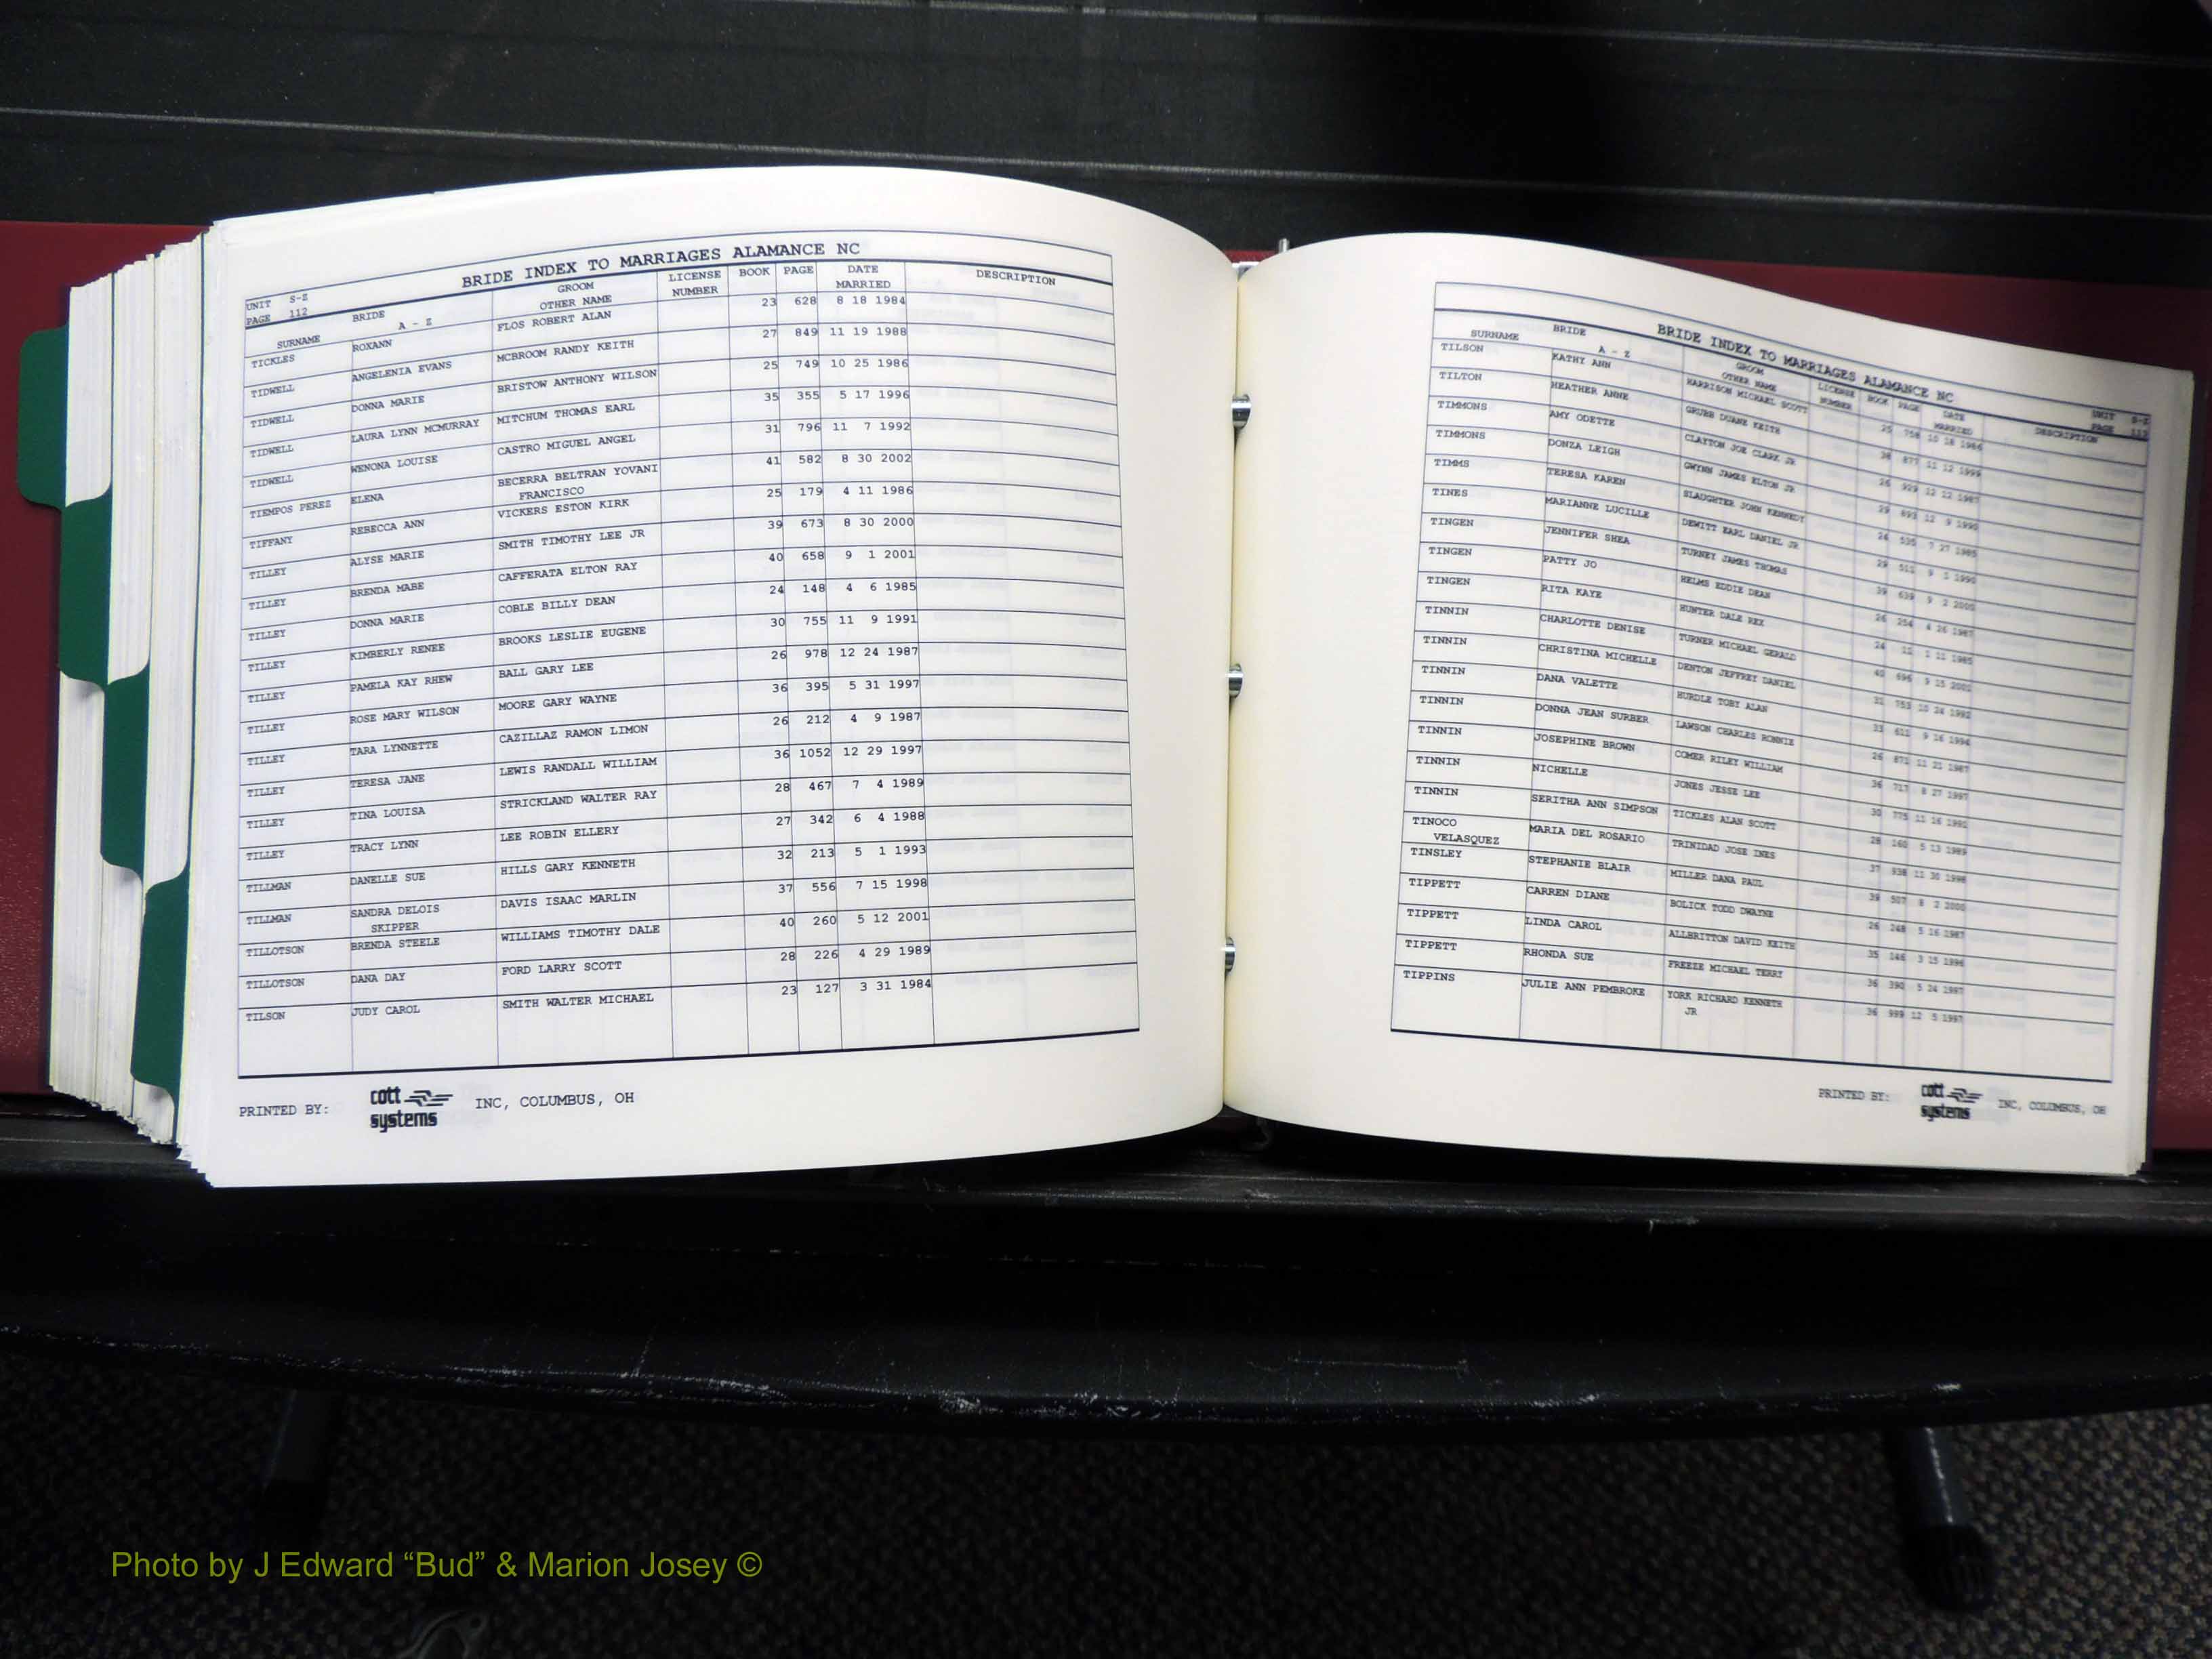 BRIDE INDEX TO MARRIAGES ALAMANCE NC
UNIT S-Z
PAGE 112
SURNAME BRIDE A - Z GROOM OTHER NAME LICENSE NUMBER BOOK PAGE DATE MARRIED DESCRIPTION
TICKLES ROXANN FLOS ROBERT ALAN 23 628 8 18 1984
TIDWELL ANGELENIA EVANS MCBROOM RANDY KEITH 27 849 11 19 1988
TIDWELL DONNA MARIE BRISTOW ANTHONY WILSON 25 749 10 25 1986
TIDWELL LAURA LYNN MCMURRAY MITCHUM THOMAS EARL 35 355 5 17 1996
TIDWELL WENONA LOUISE CASTRO MIGUEL ANGEL 31 796 11 7 1992
TIEMPOS PEREZ ELENA BECERRA BELTRAN YOVANI 41 582 8 30 2002
FRANCISCO
TIFFANY REBECCA ANN VICKERS ESTON KIRK 25 179 4 11 1986
TILLEY ALYSE MARIE SMITH TIMOTHY LEE JR 39 673 8 30 2000
TILLEY BRENDA MABE CAFFERATA ELTON RAY 40 658 9 1 2001
TILLEY DONNA MARIE COBLE BILLY DEAN 24 148 4 6 1985
TILLEY KIMBERLY RENEE BROOKS LESLIE EUGENE 30 755 11 9 1991
TILLEY PAMELA KAY RHEW BALL GARY LEE 26 978 12 24 1987
TILLEY ROSE MARY WILSON MOORE GARY WAYNE 36 395 5 31 1997
TILLEY TARA LYNNETTE CAZILLAZ RAMON LIMON 26 212 4 9 1987
TILLEY TERESA JANE LEWIS RANDALL WILLIAM 36 1052 12 29 1997
TILLEY TINA LOUISA STRICKLAND WALTER RAY 28 467 7 4 1989
TILLEY TRACY LYNN LEE ROBIN ELLERY 27 342 6 4 1988
TILLMAN DANELLE SUE HILLS GARY KENNETH 32 213 5 1 1993
TILLMAN SANDRA DELOIS DAVIS ISAAC MARLIN 37 556 7 15 1998
SKIPPER
TILLOTSON BRENDA STEELE WILLIAMS TIMOTHY DALE 40 260 5 12 2001
TILLOTSON DANA DAY FORD LARRY SCOTT 28 226 4 29 1989
TILSON JUDY CAROL SMITH WALTER MICHAEL 23 127 3 31 1984
PRINTED BY: cott systems INC, COLUMBUS, OH
BRIDE INDEX TO MARRIAGES ALAMANCE NC
UNIT S-Z
PAGE
SURNAME BRIDE A - Z GROOM OTHER NAME LICENSE NUMBER BOOK PAGE DATE MARRIED DESCRIPTION
TILSON KATHY ANN HARRISON MICHAEL SCOTT 25 10 18 1986
TILTON HEATHER ANNE GRUBB DUANE KEITH 11 12 1999
TIMMONS AMY ODETTE CLAYTON JOE CLARK JR 26 929 12 12 1987
TIMMONS DONZA LEIGH GWYNN JAMES ELTON JR 29 12 9 1990
TIMMS TERESA KAREN SLAUGHTER JOHN KENNEDY 24 535 7 27 1985
TINES MARIANNE LUCILLE DEWITT EARL DANIEL JR 29 511 9 1 1990
TINGEN JENNIFER SHEA TURNEY JAMES THOMAS 39 639 9 2 2000
TINGEN PATTY JO HELMS EDDIE DEAN 26 254 4 26 1987
TINGEN RITA KAYE HUNTER DALE REX 24 1 11 1985
TINNIN CHARLOTTE DENISE TURNER MICHAEL GERALD 40 696 9 15 2001
TINNIN CHRISTINA MICHELLE DENTON JEFFREY DANIEL 31 753 10 24 1992
TINNIN DANA VALETTE HURDLE TOBY ALAN 33 611 9 16 1994
TINNIN DONNA JEAN SURBER LAWSON CHARLES RONNIE 26 871 11 21 1987
TINNIN JOSEPHINE BROWN COMER RILEY WILLIAM 36 717 8 27 1997
TINNIN NICHELLE JONES JESSE LEE 30 775 11 16 1991
TINNIN SERITHA ANN SIMPSON TICKLES ALAN SCOTT 28 160 5 13 1989
TINOCO MARIA DEL ROSARIO TRINIDAD JOSE INES 37 938 11 30 1998
VELASQUEZ
TINSLEY STEPHANIE BLAIR MILLER DANA PAUL 39 507 8 2 2000
TIPPETT CARREN DIANE BOLICK TODD DWAYNE 26 248 5 16 1987
TIPPETT LINDA CAROL ALLBRITTON DAVID KEITH 35 146 3 15 1996
TIPPETT RHONDA SUE FREEZE MICHAEL TERRY 36 390 5 24 1997
TIPPINS JULIE ANN PEMBROKE YORK RICHARD KENNETH 36 999 12 5 1997
JR
PRINTED BY: cott systems INC, COLUMBUS, OH
Photo by J Edward “Bud” & Marion Josey ©